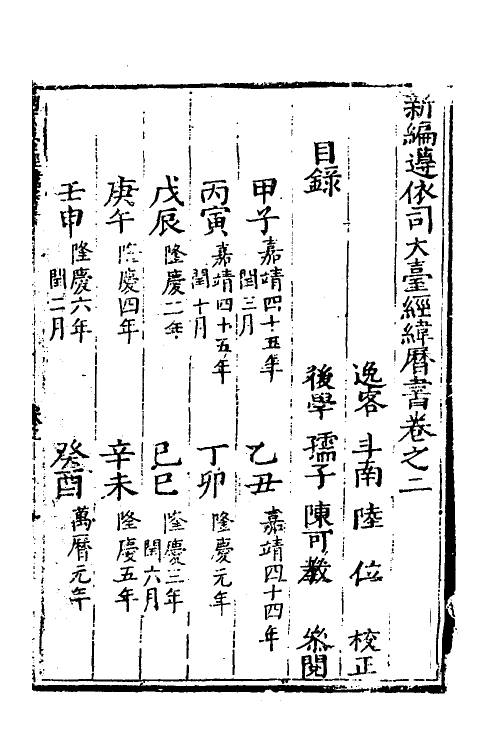 新編遵依司大臺經緯曆書卷之二
逸客 斗南 陸 位 校正
後學 孺子 陳可教 叅閱
目錄
甲子 嘉靖四十五年 閏三月
乙丑 嘉靖四十四年
丙寅 嘉靖四十五年 閏十月
丁卯 隆慶元年
戊辰 隆慶二年
己巳 隆慶三年 閏六月
庚午 隆慶四年
辛未 隆慶五年
壬申 隆慶六年 閏二月
癸酉 萬曆元年